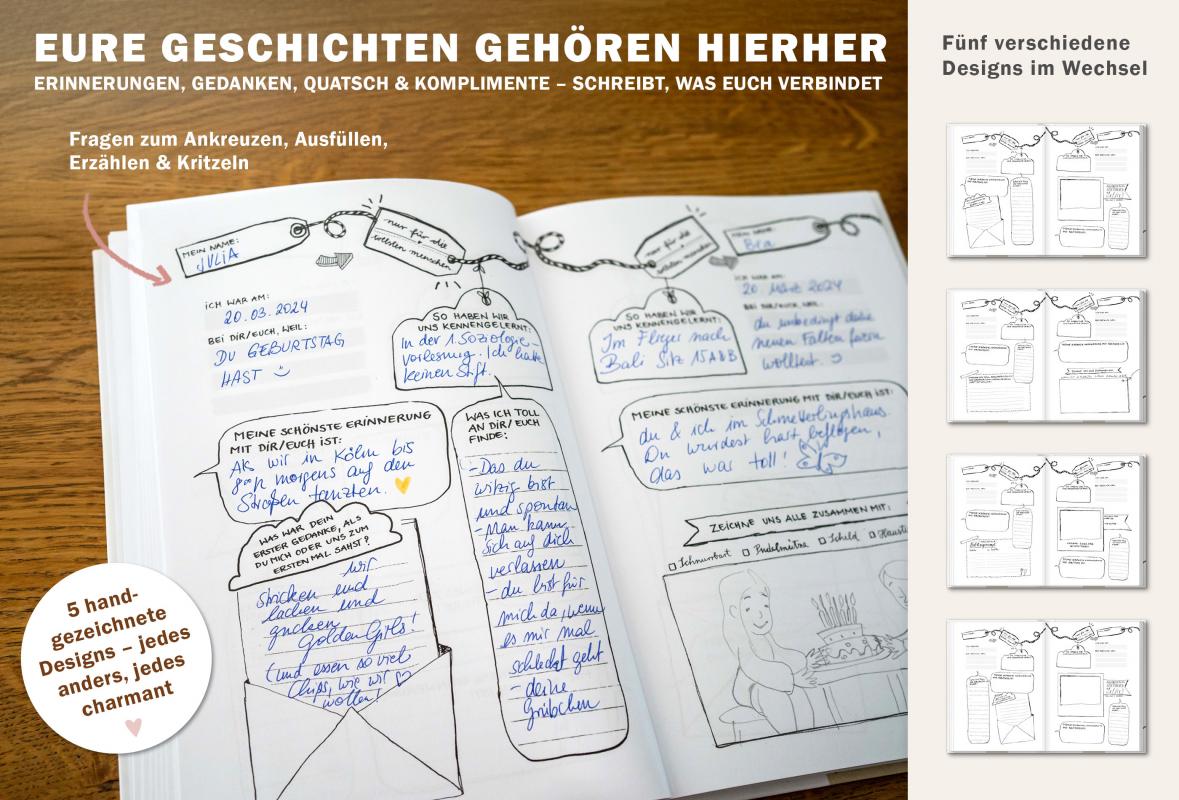 EURE GESCHICHTEN GEHÖREN HIERHER
ERINNERUNGEN, GEDANKEN, QUATSCH & KOMPLIMENTE – SCHREIBT, WAS EUCH VERBINDET
Fragen zum Ankreuzen, Ausfüllen,
Erzählen & Kritzeln
Fünf verschiedene
Designs im Wechsel
MEIN NAME:
JULIA
nur für die
tollsten menschen
ICH WAR AM:
20.03.2024
BEI DIR/EUCH, WEIL:
DU GEBURTSTAG
HAST
SO HABEN WIR
UNS KENNENGELERNT:
In der 1. Soziologie-
vorlesung. Ich hatte
keinen Stift.
MEINE SCHÖNSTE ERINNERUNG
MIT DIR/EUCH IST:
Als wir in Köln bis
morgens auf den
Straßen tanzten.
WAS WAR DEIN
ERSTER GEDANKE, ALS
DU MICH ODER UNS ZUM
ERSTEN MAL SAHST?
wir
stricken und
lachen und
gucken
Golden Girls!
(und essen so viel
Chips, wie wir
wollen!
WAS ICH TOLL
AN DIR/EUCH
FINDE:
- Das du
witzig bist
und spontan
Man kann
sich auf dich
verlassen
- du bist für
mich da, wenn
es mir mal
schlecht geht
- deine
Grübchen
nur für die
tollsten menschen
MEIN NAME:
ICH WAR AM:
20. März 2024
BEI DIR/EUCH, WEIL:
du unbedingt deine
neuen Falten feiern
wolltest.
SO HABEN WIR
UNS KENNENGELERNT:
Im Flieger nach
Bali Sitz 15A&B
MEINE SCHÖNSTE ERINNERUNG MIT DIR/EUCH IST:
du & ich im Schmetterlingshaus.
Du wurdest hart beflogen,
das war toll!
ZEICHNE UNS ALLE ZUSAMMEN MIT:
Schnurrbart Pudelmütze Schild Hausti
5 hand-
gezeichnete
Designs – jedes
anders, jedes
charmant